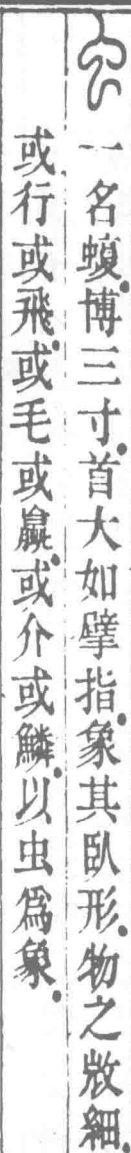 虫一名蝮。博三寸。首大如擘指。象其臥形。物之𢼸細。
或行或飛。或毛或蠃。或介或鱗。以虫爲象。